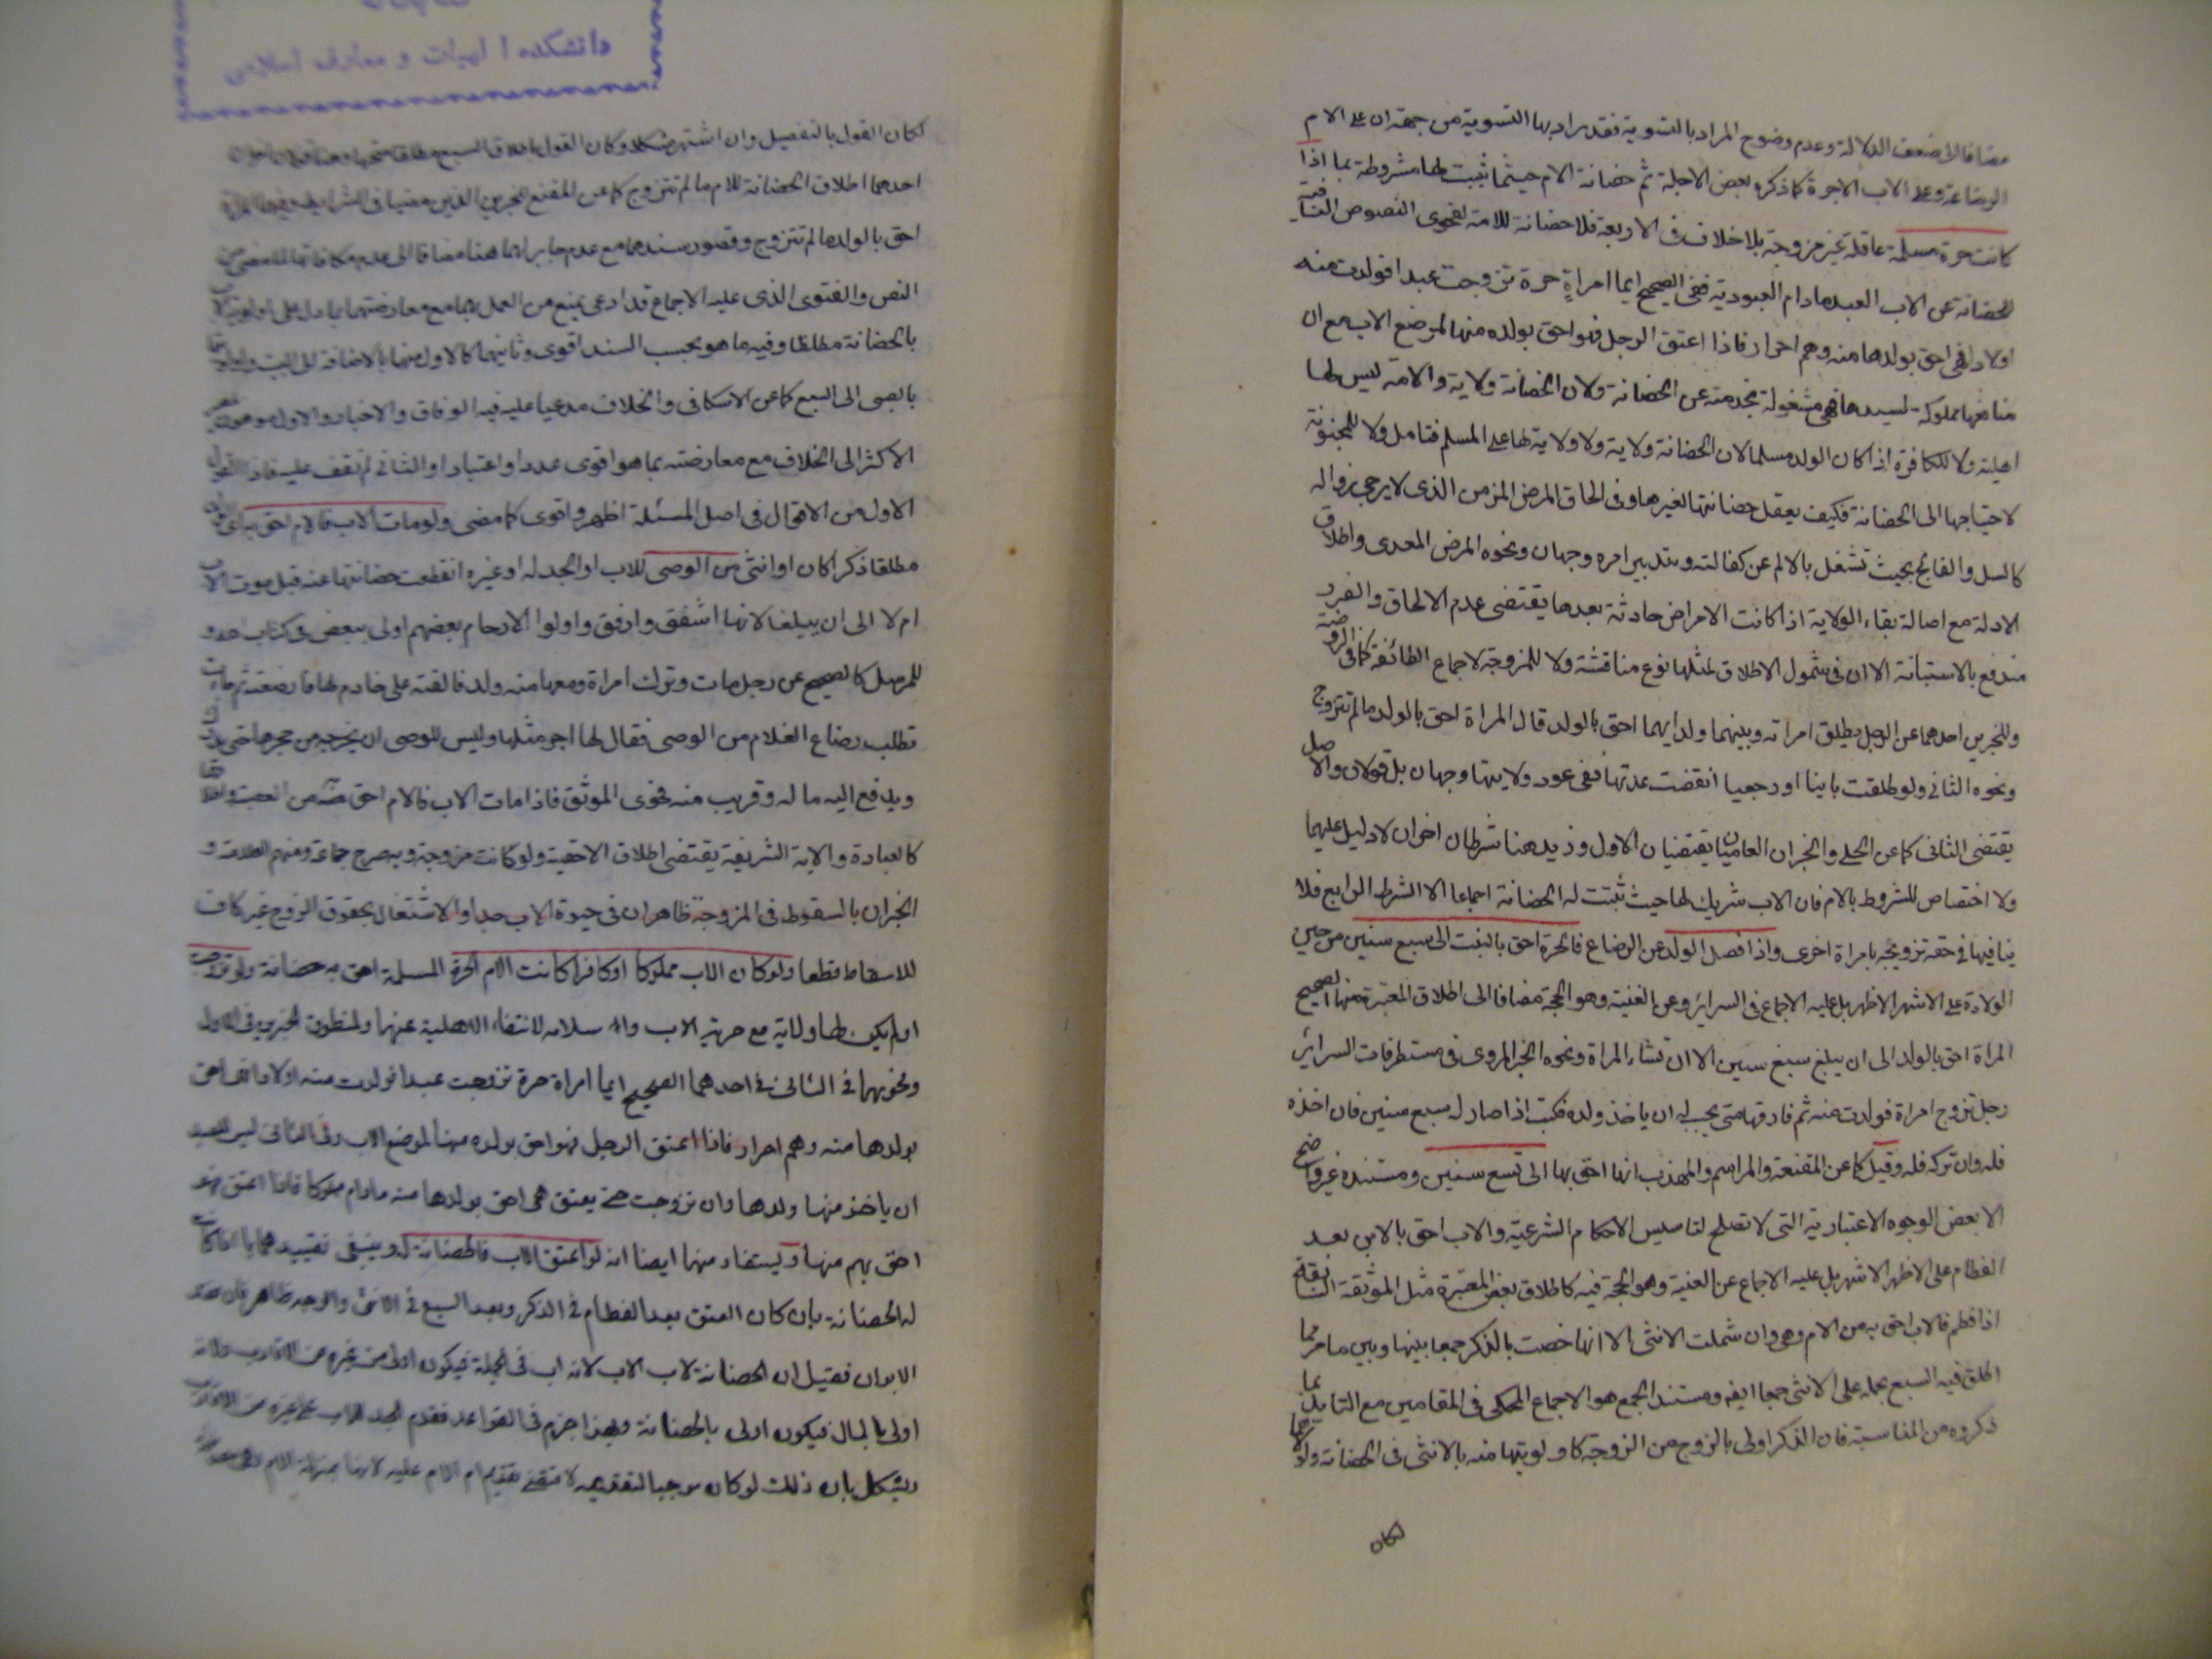 مضافا الى ضعف الدلالة وعدم وضوح المراد بالتسوية فقد يراد بها التسوية من جهة ان على الام
الرضاعة وعلى الاب الاجرة كما ذكره بعض الاجلة ثم حضانة الام حيثما ثبت لها مشروطة بما اذا
كانت حرة مسلمة عاقلة غير مزوجة بلا خلاف في الاربعة فلا حضانة للامة لفحوى النصوص النافية
للحضانة عن الاب العبد ما دام العبودية ففي الصحيح ايما امراة حرة تزوجت عبدا فولدت منه
اولادا فهي احق بولدها منه وهم احرار فاذا اعتق الرجل فهو احق بولده منها لموضع الاب مع ان
منافعها مملوكة لسيدها فهي مشغولة بخدمته عن الحضانة ولان الحضانة ولاية والامة ليس لها
اهلية ولا للكافرة اذا كان الولد مسلما لان الحضانة ولاية ولا ولاية لها على المسلم فتامل ولا للمجنونة
لاحتياجها الى الحضانة فكيف يعقل حضانتها لغيرها وفي الحاق المرض المزمن الذى لا يرجى زواله
كالسل والفالج بحيث تشغل بالالم عن كفالته وتدبير امره وجهان ونحوه المرض المعدى واطلاق
الادلة مع اصالة بقاء الولاية اذا كانت الامراض حادثة بعدها يقتضى عدم الالحاق والضرر
مندفع بالاستبانة الا ان في شمول الاطلاق لمثلها نوع مناقشة ولا للمزوجة لاجماع الطائفة كما في الروضة
وللخبرين احدهما عن الرجل يطلق امراته وبينهما ولد ايهما احق بالولد قال المراة احق بالولد ما لم تتزوج
ونحوه الثاني ولو طلقت باينا او رجعيا انقضت عدتها ففي عود ولايتها وجهان بل قولان والاصل
يقتضى الثانى كما عن الحلى والخبران العاميان يقتضيان الاول وزيد هنا شرطان اخران لا دليل عليهما
ولا اختصاص للشروط بالام فان الاب شريك لها حيث ثبتت له الحضانة اجماعا الا الشرط الرابع فلا
ينافيها في حقه تزويجه بامراة اخرى واذا فصل الولد عن الرضاع فالحرة احق بالبنت الى سبع سنين من حين
الولادة على الاشهر الاظهر بل عليه الاجماع في السرائر وعن الغنية وهو الحجة مضافا الى اطلاق المعتبرة منها الصحيح
المراة احق بالولد الى ان يبلغ سبع سنين الا ان تشاء المراة ونحوه الخبر المروى في مستطرفات السرائر
رجل تزوج امراة فولدت منه ثم فارقها متى يجب له ان ياخذ ولده فكتب اذا صار له سبع سنين فان اخذه
فله وان تركه فله وقيل كما عن المقنعة والمراسم والمهذب انها احق بها الى تسع سنين ومستنده غير واضح
الا بعض الوجوه الاعتبارية التى لا تصلح لتاسيس الاحكام الشرعية والاب احق بالابن بعد
الفطام على الاظهر الاشهر بل عليه الاجماع عن الغنية وهو الحجة فيه كاطلاق بعض المعتبرة مثل الموثقة السابقة
اذا فطم فالاب احق به من الام وهى وان شملت الانثى الا انها خصت بالذكر جمعا بينها وبين ما مر مما
اطلق فيه السبع بحمله على الانثى جمعا ايضا ومستند الجمع هو الاجماع المحكى في المقامين مع التاييد بما
ذكروه من المناسبة فان الذكر اولى بالزوج من الزوجة كاولويتها منه بالانثى في الحضانة ولولاهما
لكان
دانشكده الهيات و معارف اسلامى
لكان القول بالتفصيل وان اشتهر مشكلا وكان القول باطلاق السبع مطلقا متجها وهنا قولان اخران
احدهما اطلاق الحضانة للام ما لم تتزوج كما عن المقنع للخبرين الذين مضيا
احق بالولد ما لم تتزوج وقصور سندهما مع عدم جابر لهما هنا مضافا الى عدم مكافاتهما لما مضى من
النص والفتوى الذى عليه الاجماع قد ادعى يمنع من العمل بهما مع معارضتهما بما دل على اولوية الاب
بالحضانة مطلقا وفيه ما هو بحسب السند اقوى وثانيهما كالاول منهما بالاضافة الى البنت
بالصبى الى السبع كما عن الاسكافى والخلاف مدعيا عليه فيه الوفاق والاخبار والاول موهون
الاكثر الى الخلاف مع معارضته بما هو اقوى عددا واعتبارا والثانى لم نقف عليه فاذا القول
الاول من الاقوال فى اصل المسئلة اظهر واقوى كما مضى ولو مات الاب فالام احق
مطلقا ذكرا كان او انثى من الوصى للاب او الجد له او غيره انقطعت حضانتها عنه قبل موت الاب
ام لا الى ان يبلغا لانها اشفق وارفق واولوا الارحام بعضهم اولى ببعض فى كتاب الله و
للمرسل كالصحيح عن رجل مات وترك امراة ومعها منه ولد فالقته على خادم لها فارضعته ثم جاءت
تطلب رضاع الغلام من الوصى فقال لها اجر مثلها وليس للوصى ان يخرجه من حجرها حتى يدرك
ويدفع اليه ماله وقريب منه فحوى الموثق فاذا مات الاب فالام احق به من العصبة
كالعبادة والاية الشريفة يقتضى اطلاق الاحقية ولو كانت مزوجة وبه صرح جماعة ومنهم العلامة و
الخبران بالسقوط فى المزوجة ظاهران فى حيوة الاب جدا والاشتغال بحقوق الزوج غير كاف
للاسقاط قطعا ولو كان الاب مملوكا او كافرا كانت الام الحرة المسلمة احق به حضانة ولو تزوجت
او لم يكن لها ولاية مع حرية الاب والاسلام لانتفاء الاهلية عنهما ولمنطوق الخبرين فى الاول
ونحويهما فى الثانى فى احدهما الصحيح ايما امراة حرة تزوجت عبدا فولدت منه اولادا فهى احق
بولدها منه وهم احرار فاذا اعتق الرجل فهو احق بولده منها لموضع الاب وفى الثانى ليس للعبد
ان ياخذ منها ولدها وان تزوجت حتى يعتق هى احق بولدها منه ما دام مملوكا فاذا اعتق فهو
احق بهم منها ويستفاد منهما ايضا انه لو اعتق الاب فالحضانة له وينبغى تقييدهما بما اذا كانت
له الحضانة بان كان العتق بعد الفطام فى الذكر وبعد السبع فى الانثى والوجه ظاهر فان فقد
الابوان فقيل ان الحضانة لاب الاب لانه اب فى الجملة فيكون اولى من غيره من الاقارب ولانه
اولى بالمال فيكون اولى بالحضانة وبهذا جزم فى القواعد فقدم الجد للاب على غيره من الاقارب
ويشكل بان ذلك لو كان موجبا لتقديمه لاقتضى تقديم ام الام عليه لانها بمنزلة الام